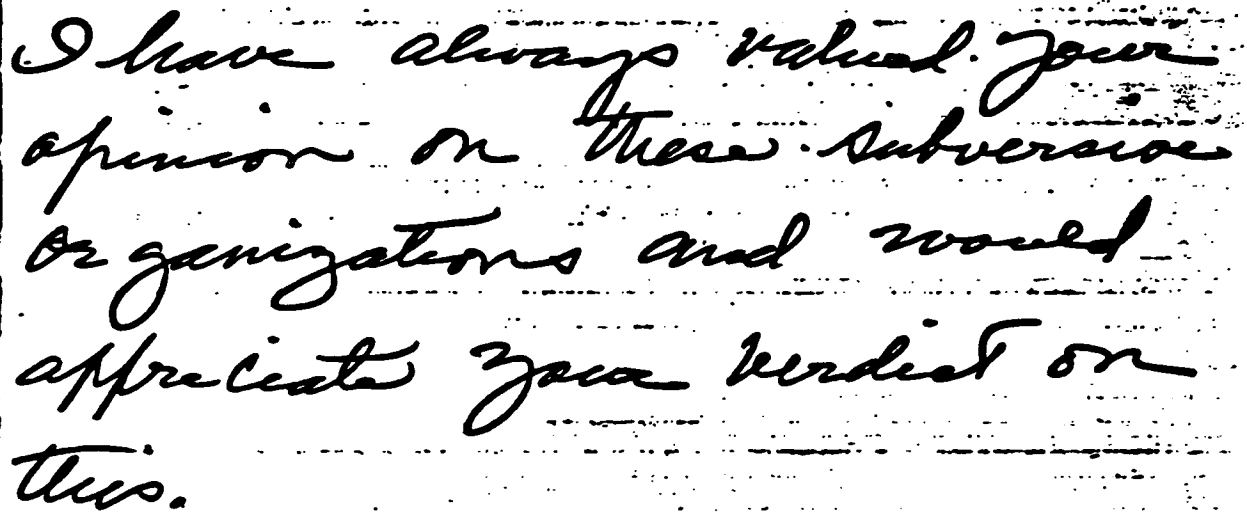 I have always valued your
opinion on these subversive
organizations and would
appreciate your verdict on
this.